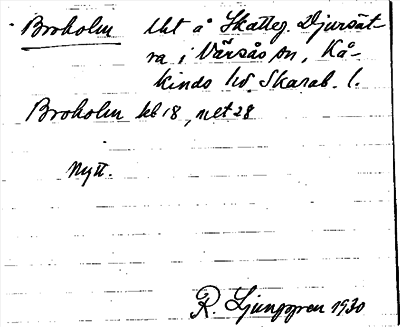 Broholm lht å Skatteg. Djursät-
ra i Värsås sn, Kå-
kinds hd. Skarab. l.
Broholm hb 18, nct 28
Nytt.
R. Ljunggren 1930